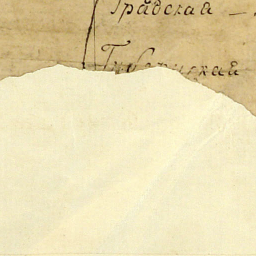 Градская —
Губернской